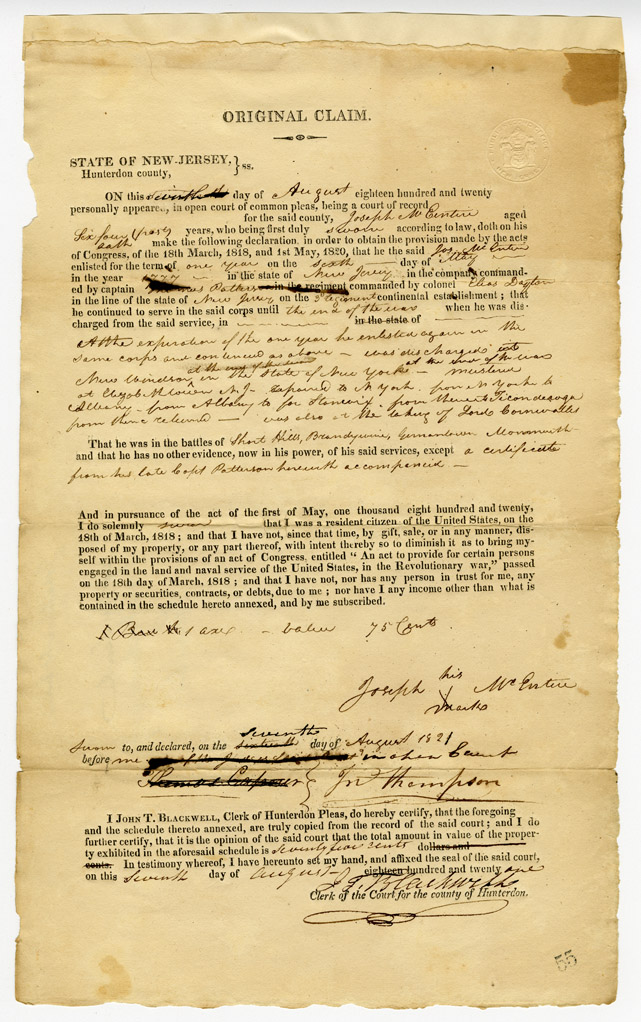 ORIGINAL CLAIM.
STATE OF NEW-JERSEY, } ss.
Hunterdon county,
ON this seventh day of August eighteen hundred and twenty
personally appeared, in open court of common pleas, being a court of record
for the said county, Joseph McEntire aged
Sixty four years, who being first duly sworn according to law, doth on his
oath make the following declaration, in order to obtain the provision made by the acts
of Congress, of the 18th March, 1818, and 1st May, 1820, that he the said Jos. McEntire
enlisted for the term of one year on the sixth day of May
in the year 1777 in the state of New Jersey in the company command-
ed by captain Thomas Patterson in the regiment commanded by colonel Elias Dayton
in the line of the state of New Jersey on the 3d regiment continental establishment ; that
he continued to serve in the said corps until the end of the war when he was dis-
charged from the said service, in in the state of
At the expiration of the one year he enlisted again in the
same corps and continued as above - was discharged
at the end of the war
New Windsor in the State of New York - at the end of the war
at Elizabethtown N.J. repaired to N York. from N York to
Albany - from Albany to for Stanwix from thence Ticonderoga
from thence returned - was also at the taking of Lord Cornwallis
That he was in the battles of Short Hills, Brandywine, Germantown Monmouth -
and that he has no other evidence, now in his power, of his said services, except a certificate
from his late Capt Patterson herewith accompanied -
And in pursuance of the act of the first of May, one thousand eight hundred and twenty,
I do solemnly swear that I was a resident citizen of the United States, on the
18th of March, 1818 ; and that I have not, since that time, by gift, sale, or in any manner, dis-
posed of my property, or any part thereof, with intent thereby so to diminish it as to bring my-
self within the provisions of an act of Congress, entitled “ An act to provide for certain persons
engaged in the land and naval service of the United States, in the Revolutionary war,” passed
on the 18th day of March, 1818 ; and that I have not, nor has any person in trust for me, any
property or securities, contracts, or debts, due to me ; nor have I any income other than what is
contained in the schedule hereto annexed, and by me subscribed.
1 axe - value 75 Cents
Joseph his McEntire
X
mark
seventh
Sworn to, and declared, on the sixteenth day of August 1821
before me in open Court
Thomas Capner } Jno Thompson
I JOHN T. BLACKWELL, Clerk of Hunterdon Pleas, do hereby certify, that the foregoing
and the schedule thereto annexed, are truly copied from the record of the said court ; and I do
further certify, that it is the opinion of the said court that the total amount in value of the proper-
ty exhibited in the aforesaid schedule is seventy five cents dollars and
cents. In testimony whereof, I have hereunto set my hand, and affixed the seal of the said court,
on this seventh day of August eighteen hundred and twenty one
J. T. Blackwell
Clerk of the Court for the county of Hunterdon.
55